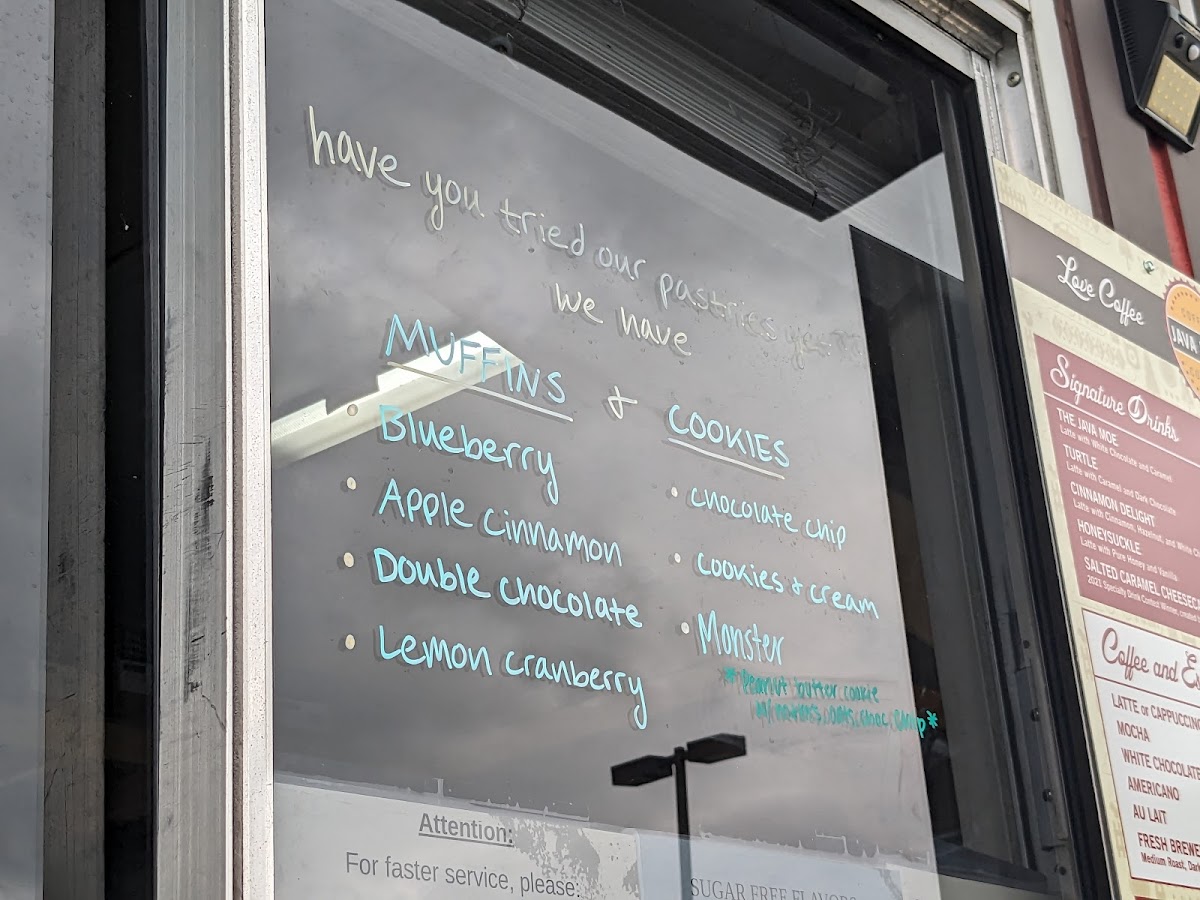 have you tried our pastries yet
we have
MUFFINS & COOKIES
• Blueberry
• Apple cinnamon
• Double chocolate
• Lemon cranberry
• chocolate chip
• cookies & cream
• Monster
*Peanut butter cookie
w/ m&ms, oats, choc. chip*
Attention:
For faster service, please:
SUGAR FREE FLAVORS
Love Coffee
JAVA
Signature Drinks
THE JAVA MOE
Latte with White Chocolate and Caramel
TURTLE
Latte with Caramel and Dark Chocolate
CINNAMON DELIGHT
Latte with Cinnamon, Hazelnut, and White
HONEYSUCKLE
Latte with Pure Honey and Vanilla
SALTED CARAMEL
Specialty Drink Contest Winner,
Coffee and
LATTE or CAPPUCCI
MOCHA
WHITE CHOCOLATE
AMERICANO
AU LAIT
FRESH BREWE
Medium Roast,